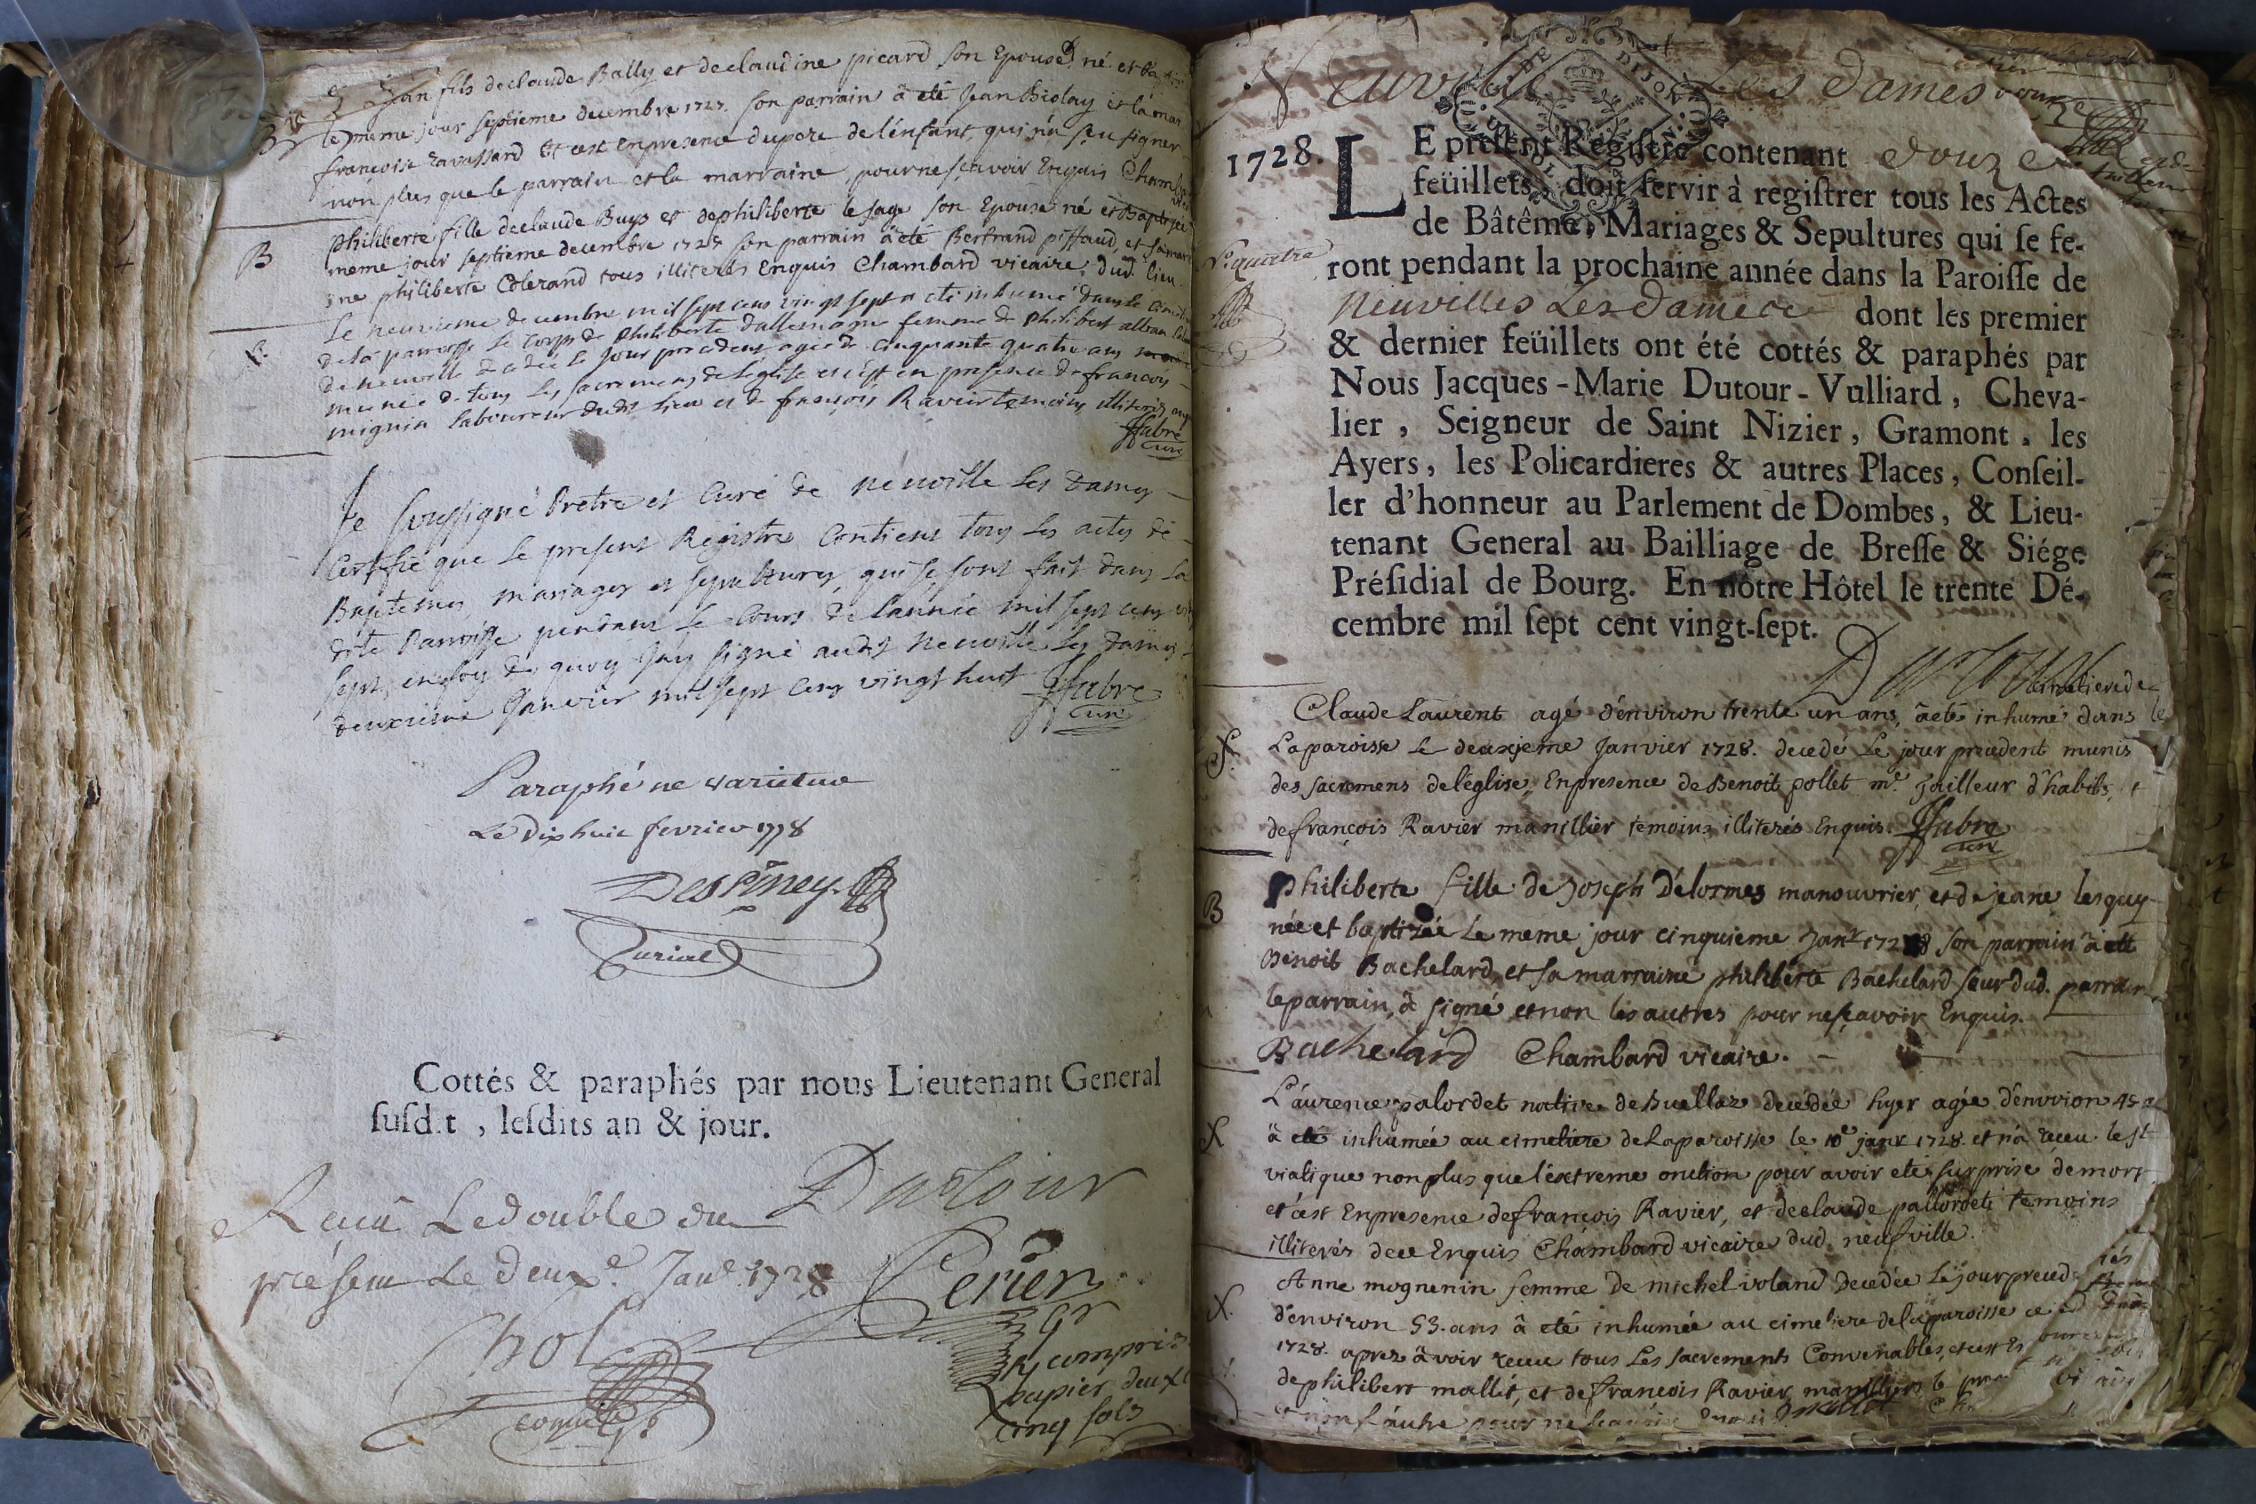 Jean fils de claude Bally et de claudine picard son Epouse né et
le meme jour septieme decembre 1727. son parrain à eté Jean Biolay et la
francoise ravassard Et cest En presence du pere de lénfant, qui n'a sçu signer
non plus que le parrain et la marraine, pour ne scavoir Enquis
B
philiberte fille de claude Buys et de philiberte le sage son Epouse né et
meme jour septieme decembre 1727 son parrain à eté Bertrand piffaud, et
ne philiberte Colerand tous illiteres Enquis Chambard vicaire dud. lieu
Le neuvieme decembre mil sept cens vingt sept a eté inhumé dans le
de la paroisse le corps de philiberte dallemagne femme de philibert
de neuville decedée le jour precedent agée de cinquante quatre ans
munie de tous les sacremens de l'église et c'est en presence de francois
mignin laboureur dudt lieu et de françois Ravier temoins illiterés
ffabre
curé
Je soussigné Pretre et Curé de neuville les Dames
Certifie que le present Registre Contient tous les actes de
Baptemes mariages et sepultures qui se sont fait dans la
dite Paroisse pendant le Cours de l'année mil sept cens
sept, en foy de quoy j'ay signé audt neuville les dames
deuxieme Janvier mil sept cens vingt huit ffabre
curé
Paraphé ne varietur
Le Dix huit fevrier 1778
Cottés & paraphés par nous Lieutenant General
susd.t , lesdits an & jour.
Dutour
Recu Le double du
présent Le deuxe. Janr 1728
Perier
y compris
papier deux
cinq sols
Neuville Les dames
1728.
LE présent Registre contenant douze
feüillets, doit servir à registrer tous les Actes
de Bâtême, Mariages & Sepultures qui se fe-
ront pendant la prochaine année dans la Paroisse de
neuvilles Les dames dont les premier
& dernier feüillets ont été cottés & paraphés par
Nous Jacques-Marie Dutour-Vulliard, Cheva-
lier, Seigneur de Saint Nizier, Gramont, les
Ayers, les Policardieres & autres Places, Conseil-
ler d'honneur au Parlement de Dombes, & Lieu-
tenant General au Bailliage de Bresse & Siége
Présidial de Bourg. En nôtre Hôtel le trente Dé-
cembre mil sept cent vingt-sept.
Dutour
Claude Laurent agé d'énviron trente un ans, à eté inhumé dans le cimetiere de
La paroisse le deuxjeme Janvier 1728. decedé Le jour precedent munis
des sacremens de l'église, En presence de Benoit pollet me. tailleur d'habits,
de françois Ravier manillier temoins illiterés Enquis. ffabre
curé
B
philiberte fille de Joseph Délormes manouvrier, et de jeane lesquy
née et baptizée Le meme jour cinquieme Janr 1728 son parrain à eté
Benoit Bachelard, et sa marraine philiberte Bachelard seur dud. parrain
le parrain, à signé et non les autres pour ne sçavoir Enquis.
Bachelard Chambard vicaire.
Láurence palordet native de Buellas decedée hyer agée d'énvvion 45
à eté inhumée au cimetiere de La paroisse le 10e janr 1728. et n'a receu le st
viatique non plus que l'éxtreme onction pour avoir eté surprise de mort
et c'est En presence de françois Ravier, et de claude pallordet temoins
illiterés de ce Enquis Chambard vicaire dud. neufville.
Anne mognenin femme de michel voland Decedée Le jour preced
d'énviron 53. ans à eté inhumée au cimetiere de la paroisse ce
1728. aprez àvoir receu tous Les sacrements Convenables, et c'est
de philibert mallet, et de francois Ravier
et non l'áutre pour ne scavoir